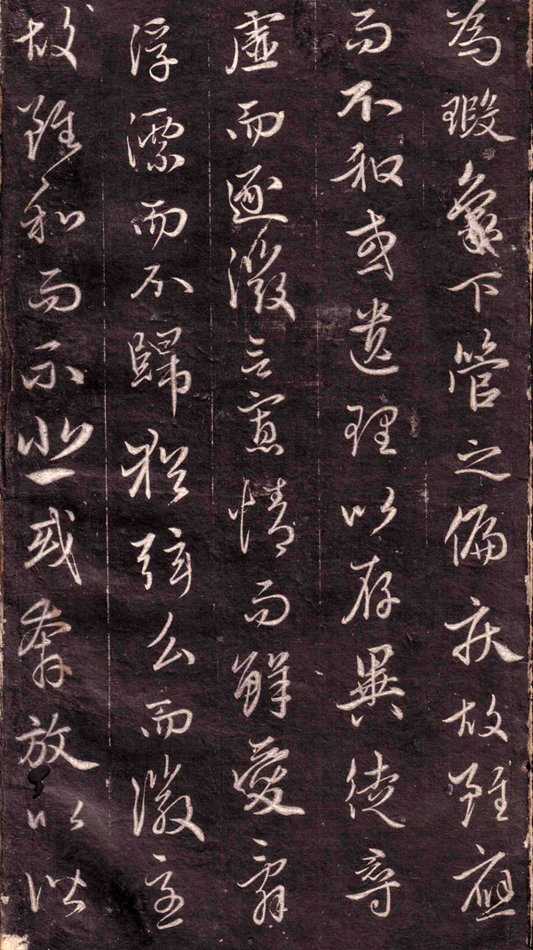 為瑕象下管之偏疾故雖應
而不和或遺理以存異徒尋
虛而逐微言寡情而鮮愛辭
浮漂而不歸猶弦么而徽急
故雖和而不悲或奔放以諧